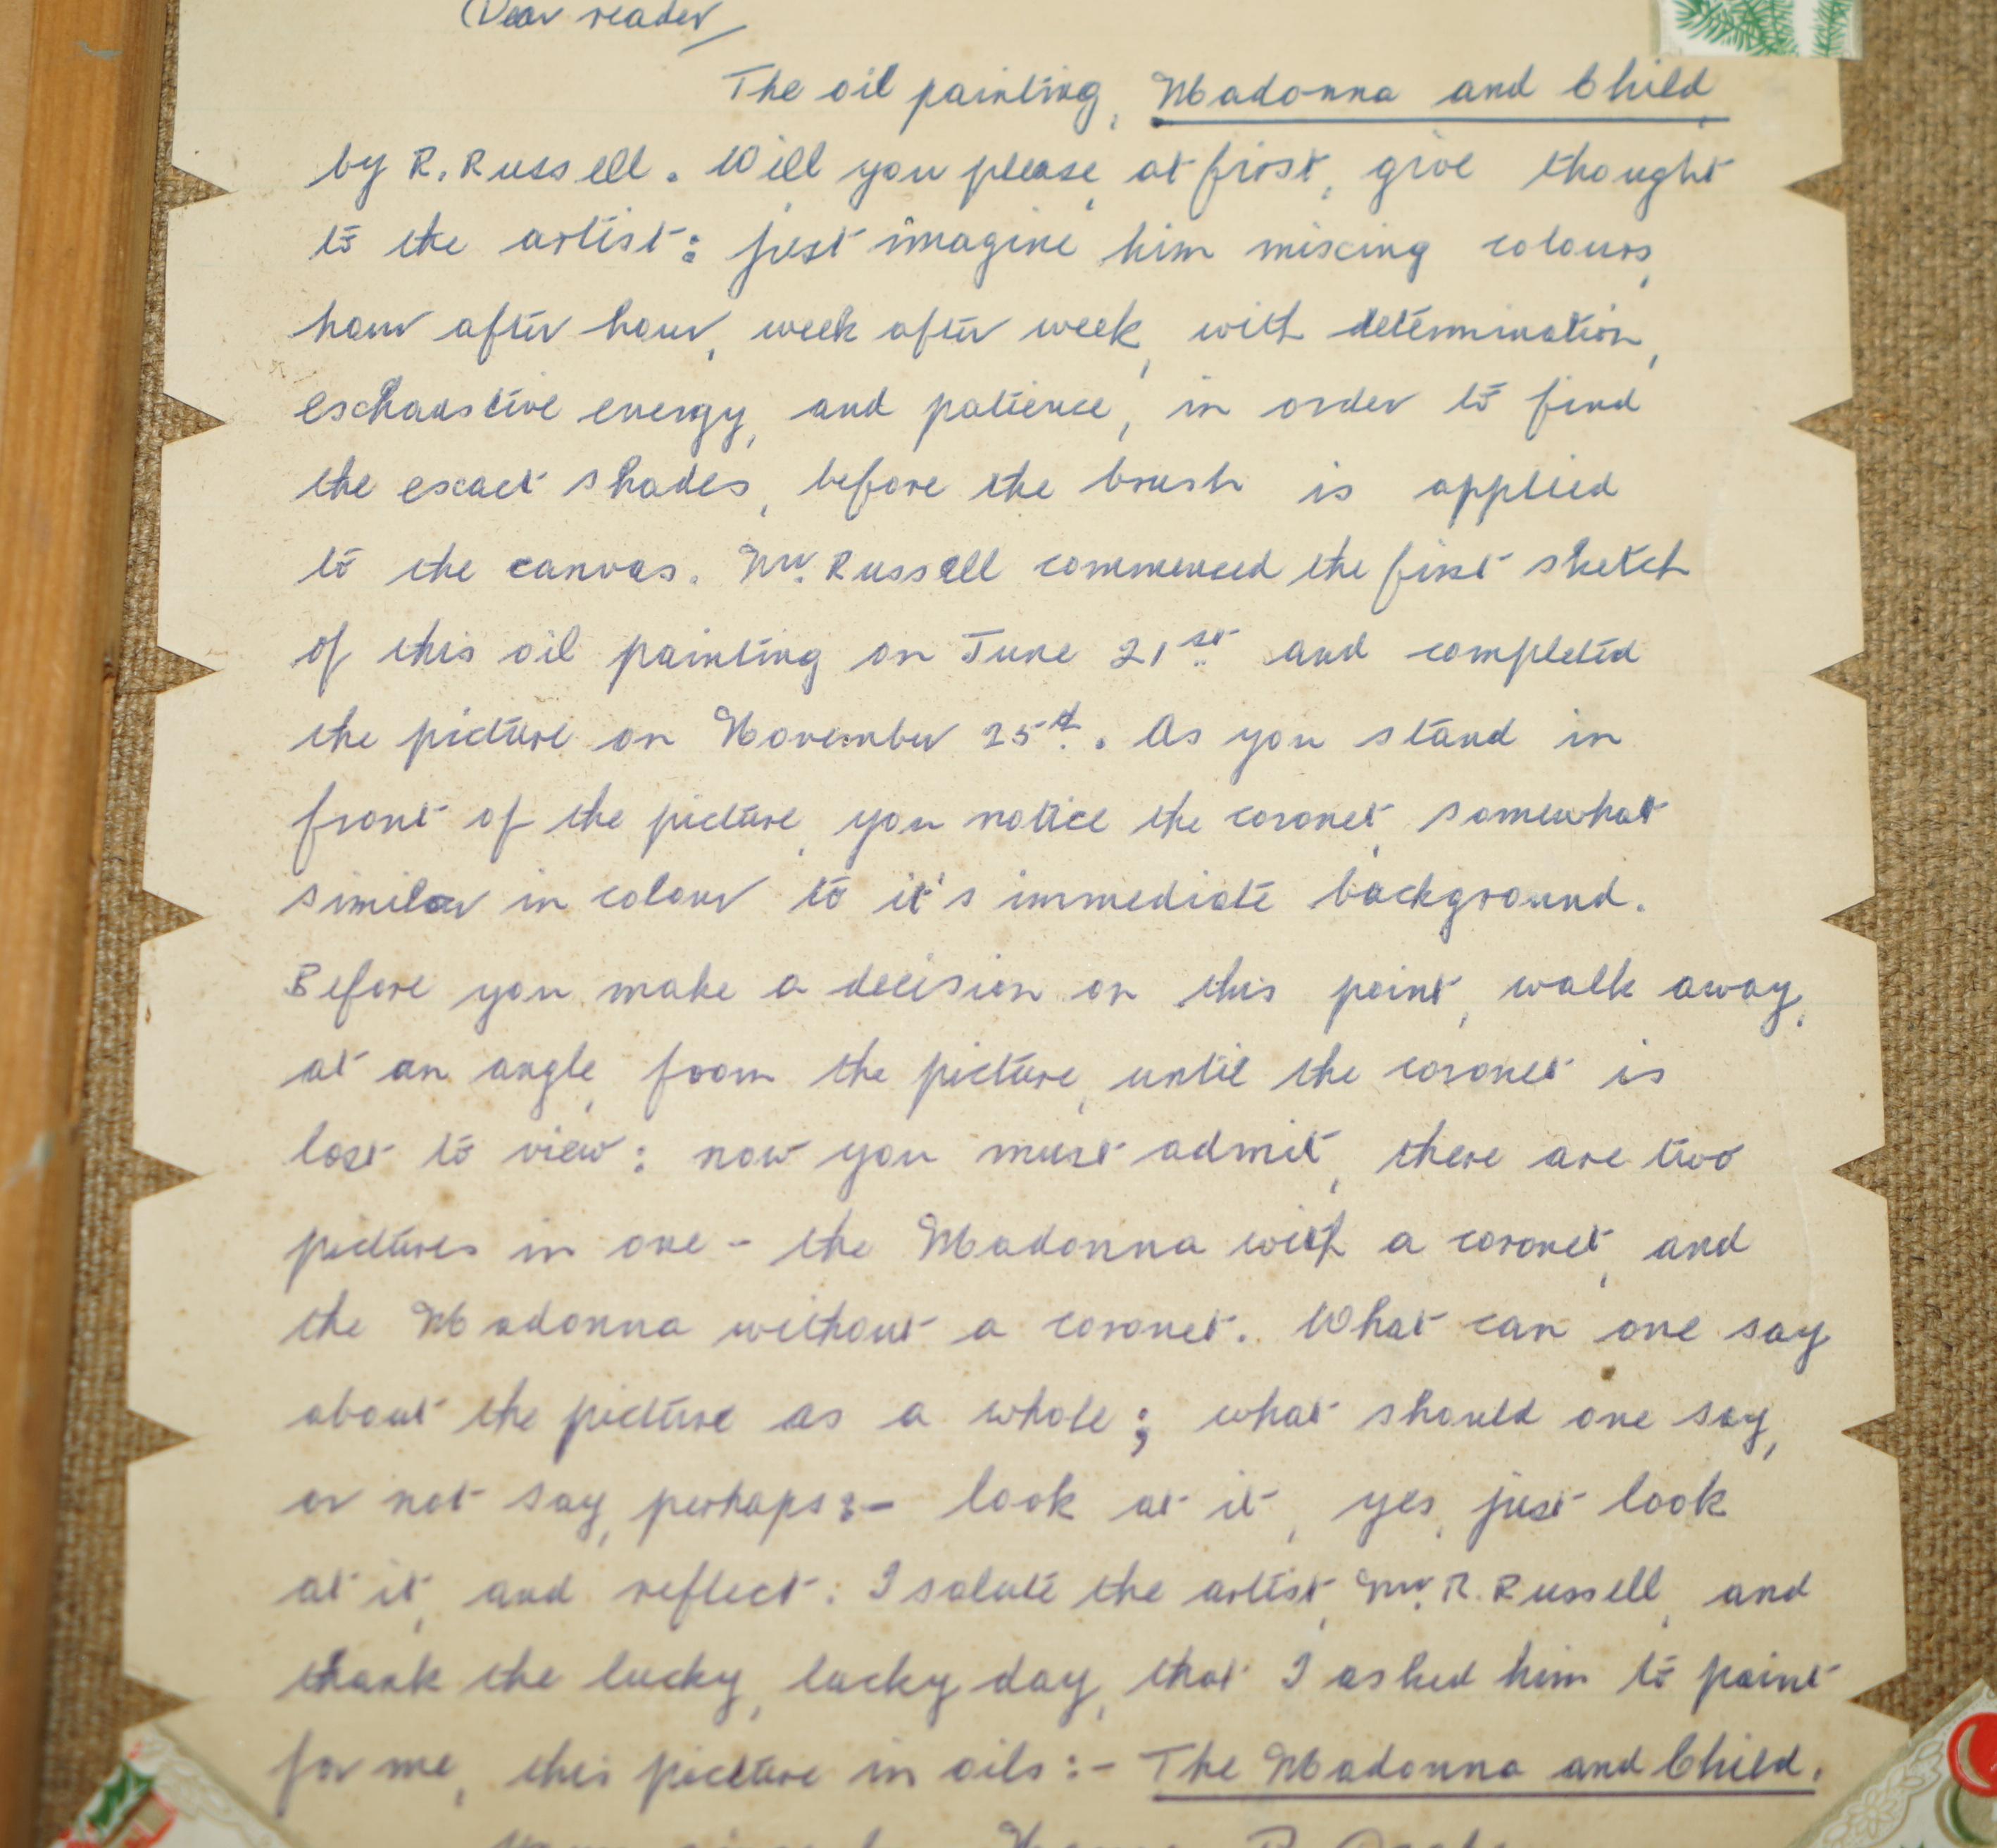 Dear reader,
The oil painting, Madonna and Child,
by R. Russell. Will you please, at first, give thought
to the artist: just imagine him mixing colours,
hour after hour, week after week, with determination,
exhaustive energy, and patience, in order to find
the exact shades, before the brush is applied
to the canvas. Mr. Russell commenced the first sketch
of this oil painting on June 21st and completed
the picture on November 25th. As you stand in
front of the picture, you notice the coronet, somewhat
similar in colour to it's immediate background.
Before you make a decision on this point, walk away,
at an angle, from the picture, until the coronet is
lost to view: now you must admit, there are two
pictures in one - the Madonna with a coronet, and
the Madonna without a coronet. What can one say
about the picture as a whole; what should one say,
or not say, perhaps:- look at it, yes, just look
at it, and reflect: I salute the artist, Mr. R. Russell, and
thank the lucky, lucky day, that I asked him to paint
for me, this picture in oils:- The Madonna and Child.